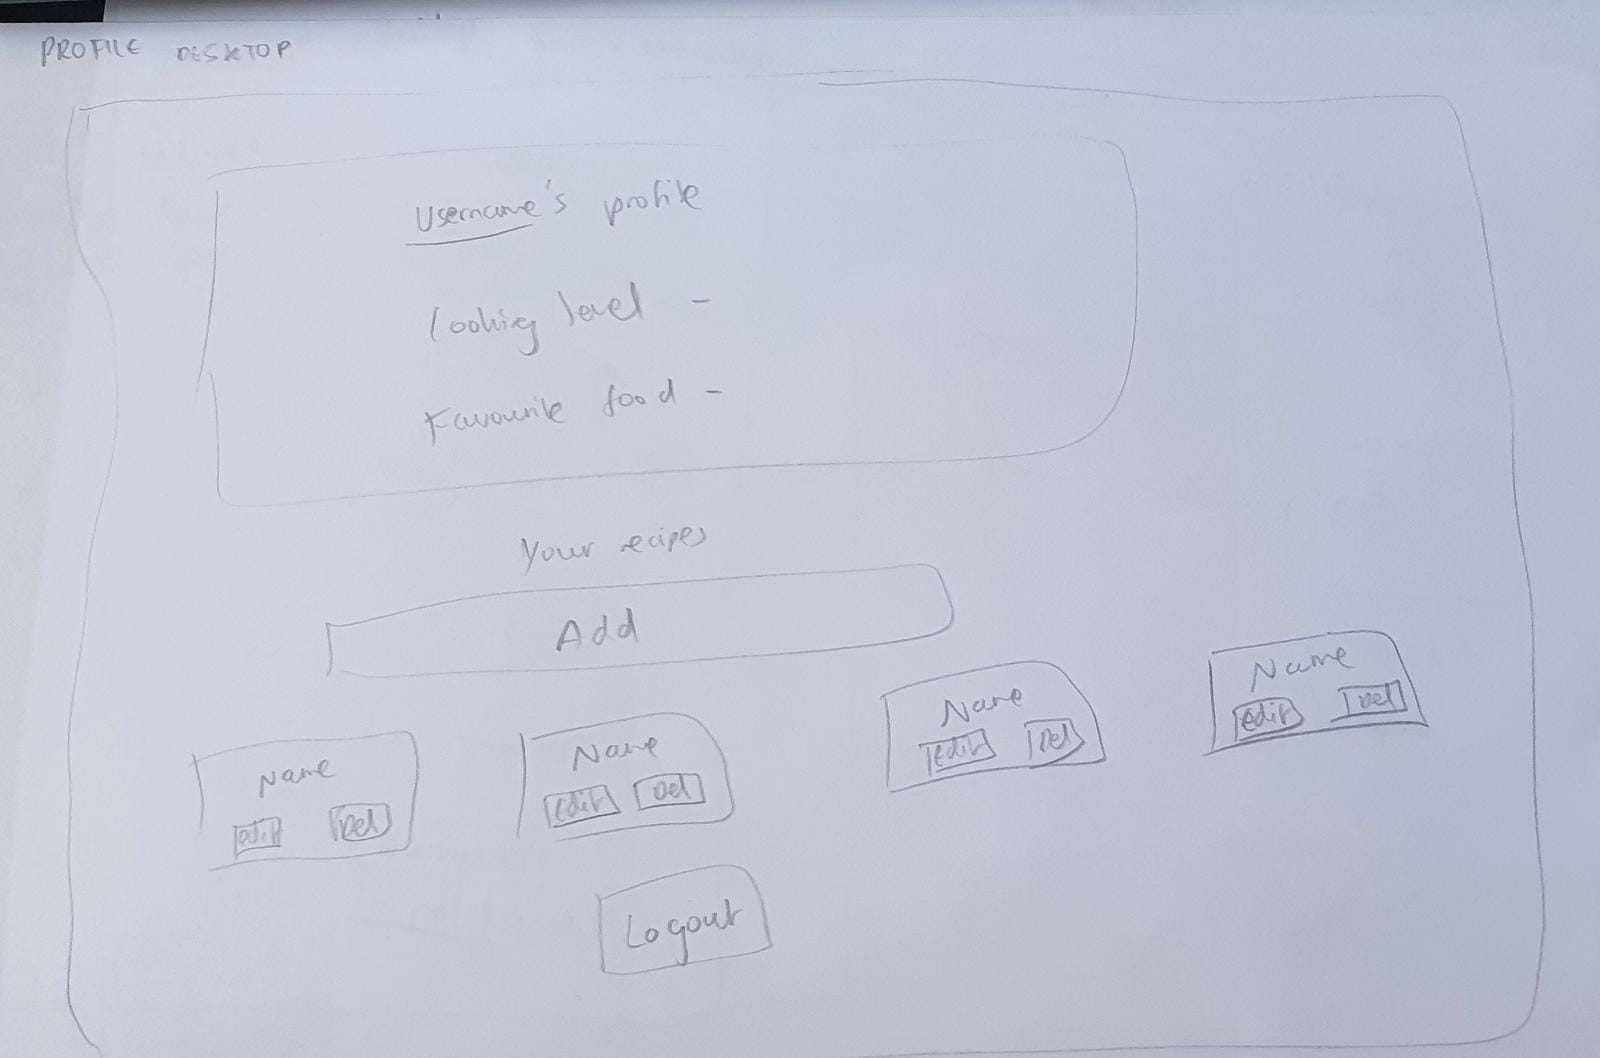 PROFILE DESKTOP
Username's profile
Cooking level -
Favourite food -
Your recipes
Add
Name
edit Del
Name
edit Del
Name
edit Del
Name
edit Del
Logout